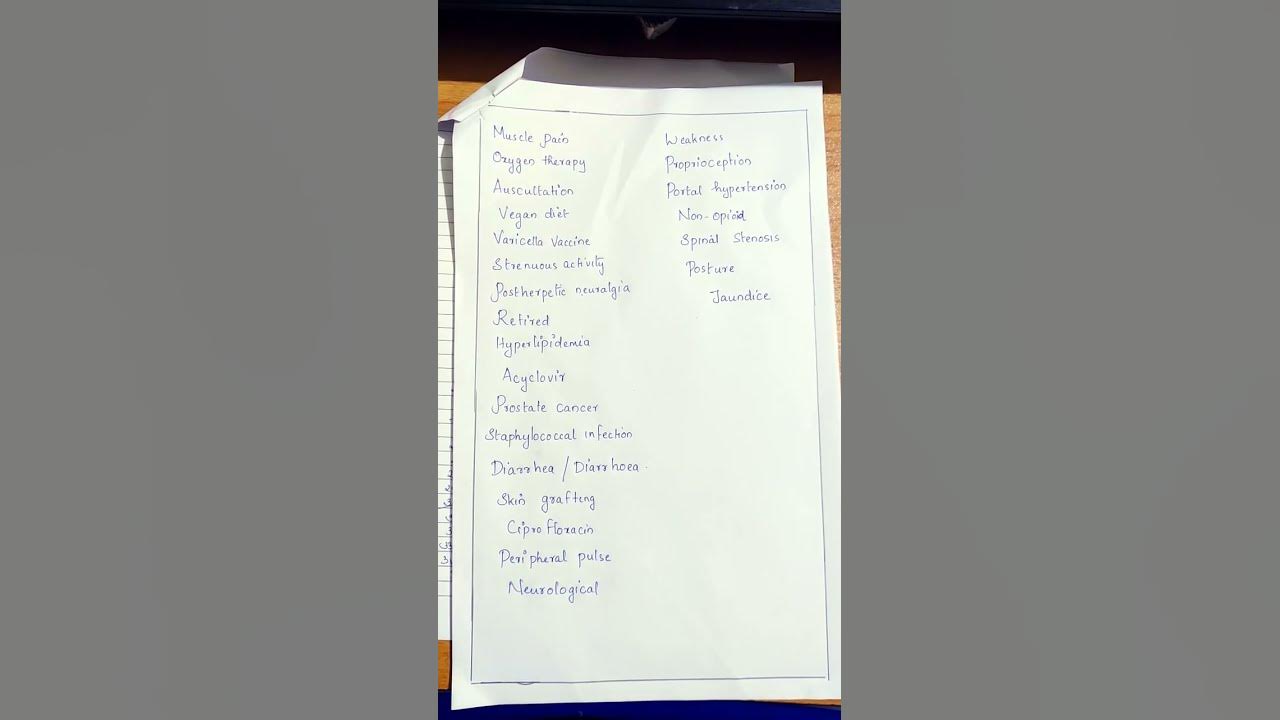 Muscle pain
Oxygen therapy
Auscultation
Vegan diet
Varicella Vaccine
Strenuous activity
Postherpetic neuralgia
Retired
Hyperlipidemia
Acyclovir
Prostate cancer
Staphylococcal infection
Diarrhea / Diarrhoea.
Skin grafting
Ciprofloxacin
Peripheral pulse
Neurological
Weakness
Proprioception
Portal hypertension
Non-opioid
Spinal Stenosis
Posture
Jaundice